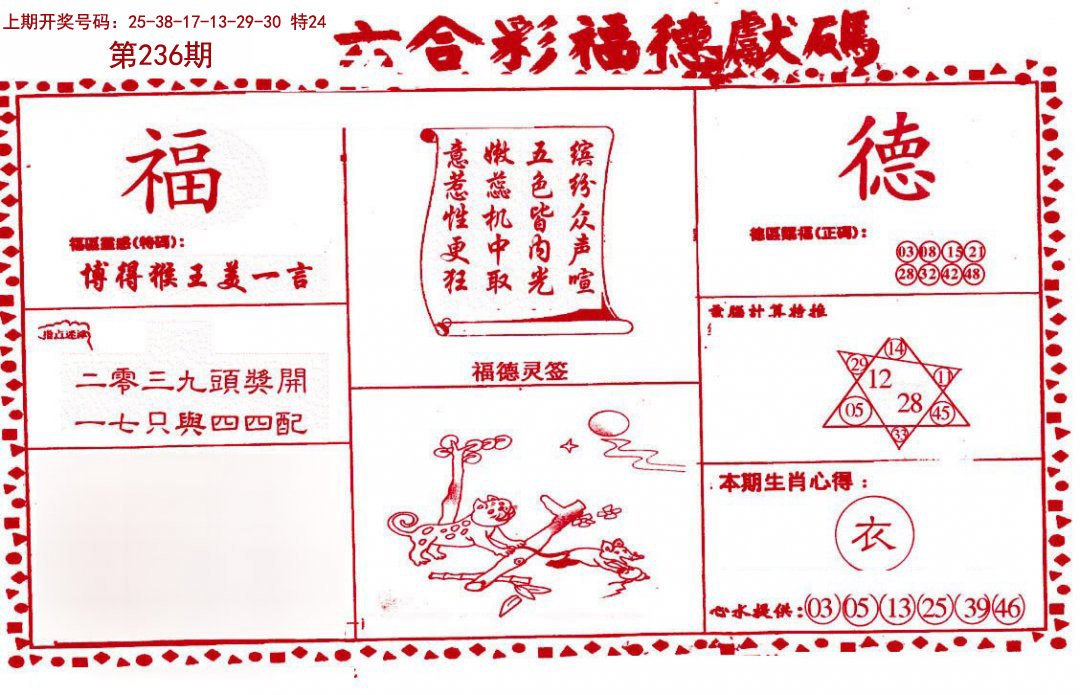 上期开奖号码：25-38-17-13-29-30 特24
第236期
六合彩福德獻碼
福
福區靈感(特碼)：
博得猴王美一言
指点迷津
二零三九頭獎開
一七只與四四配
缤纷众声喧
五色皆内光
嫩蕊机中取
意惹性更狂
福德灵签
德
德區賜福(正碼)：
03 08 15 21
28 32 42 48
電腦計算特推
14
29
11
12
28
05
45
33
本期生肖心得：
衣
心水提供：03 05 13 25 39 46